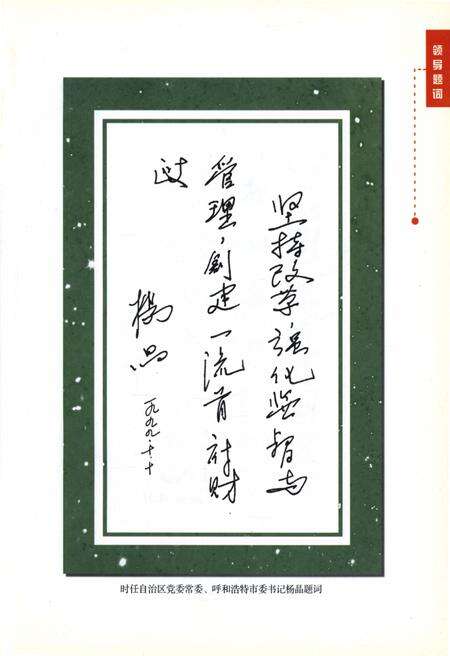 领导题词
坚持改革，强化监督与
管理，创建一流首府财
政
杨晶
一九九九.十.十
时任自治区党委常委、呼和浩特市委书记杨晶题词